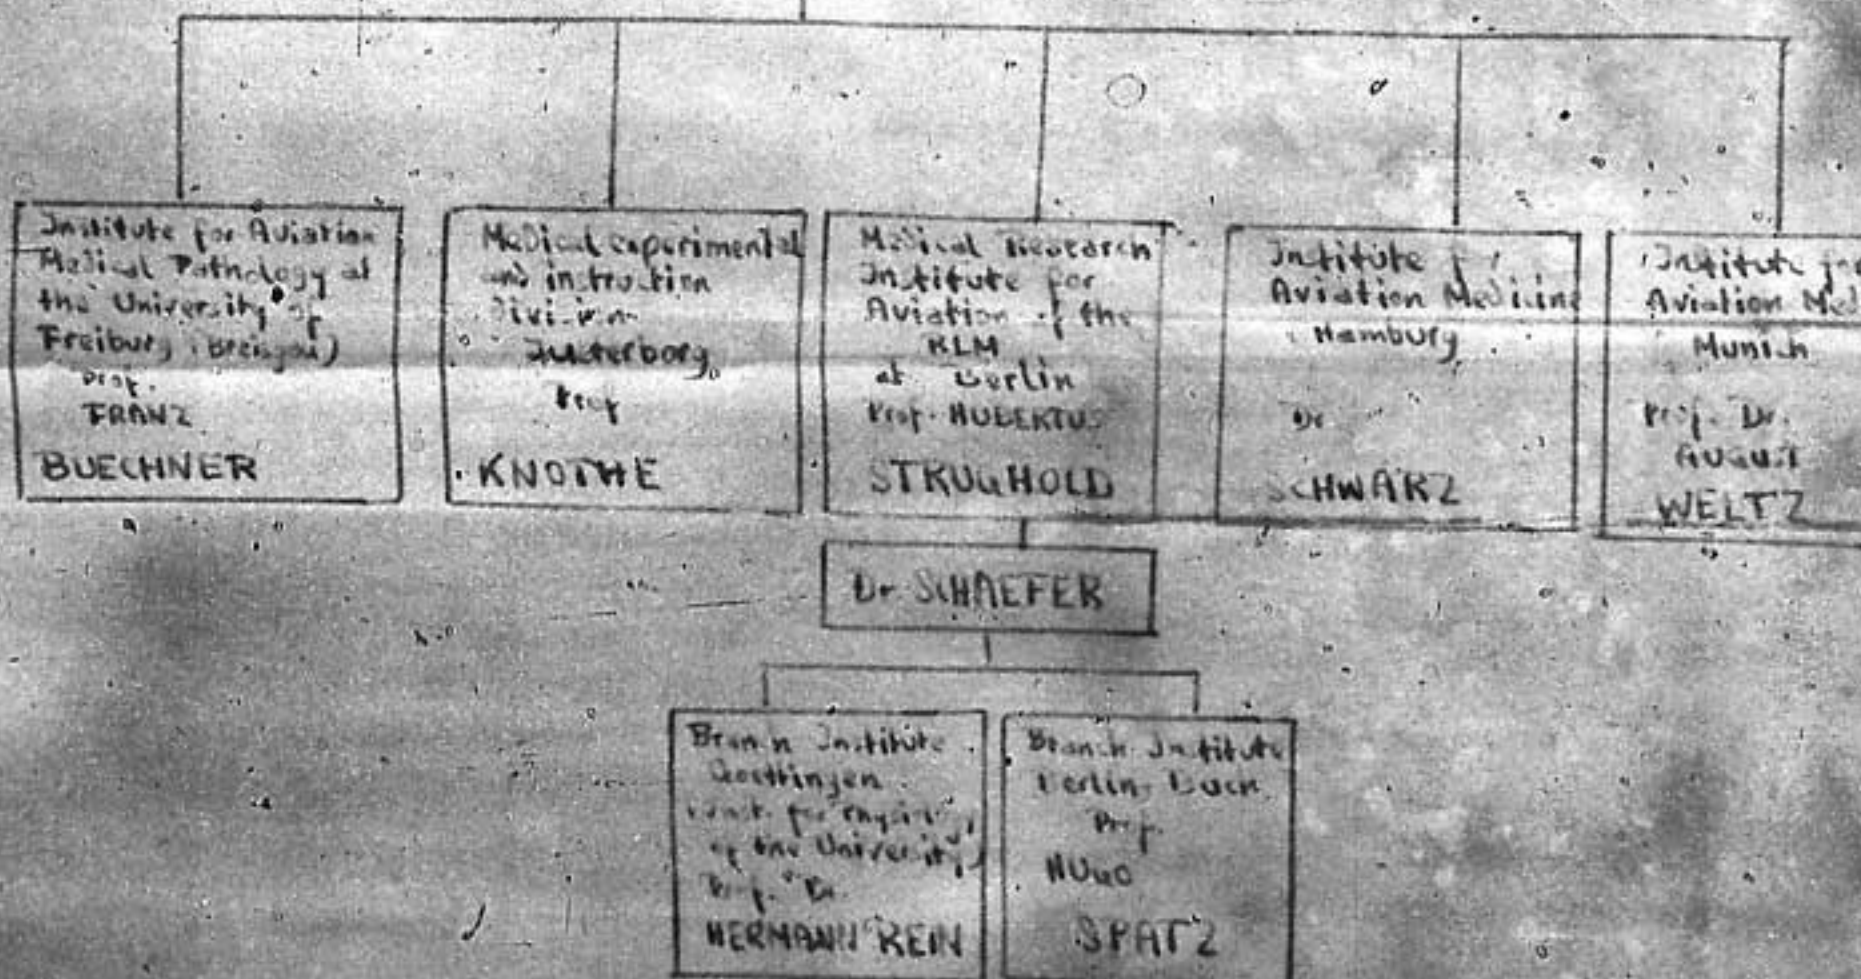 Institute for Aviation
Medical Pathology at
the University of
Freiburg (Breisgau)
Prof.
FRANZ
BUECHNER
Medical experimental
and instruction
Division
Jueterborg
Prof
KNOTHE
Medical Research
Institute for
Aviation of the
RLM
at Berlin
Prof. HUBERTUS
STRUGHOLD
Institute for
Aviation Medicine
Hamburg
Dr
SCHWARZ
Institute for
Aviation Med
Munich
Prof. Dr.
AUGUST
WELTZ
Dr SCHAEFER
Branch Institute
Goettingen
for Physiology
of the University)
Prof. Dr.
HERMANN REIN
Branch Institute
Berlin-Buch
Prof.
HUGO
SPATZ